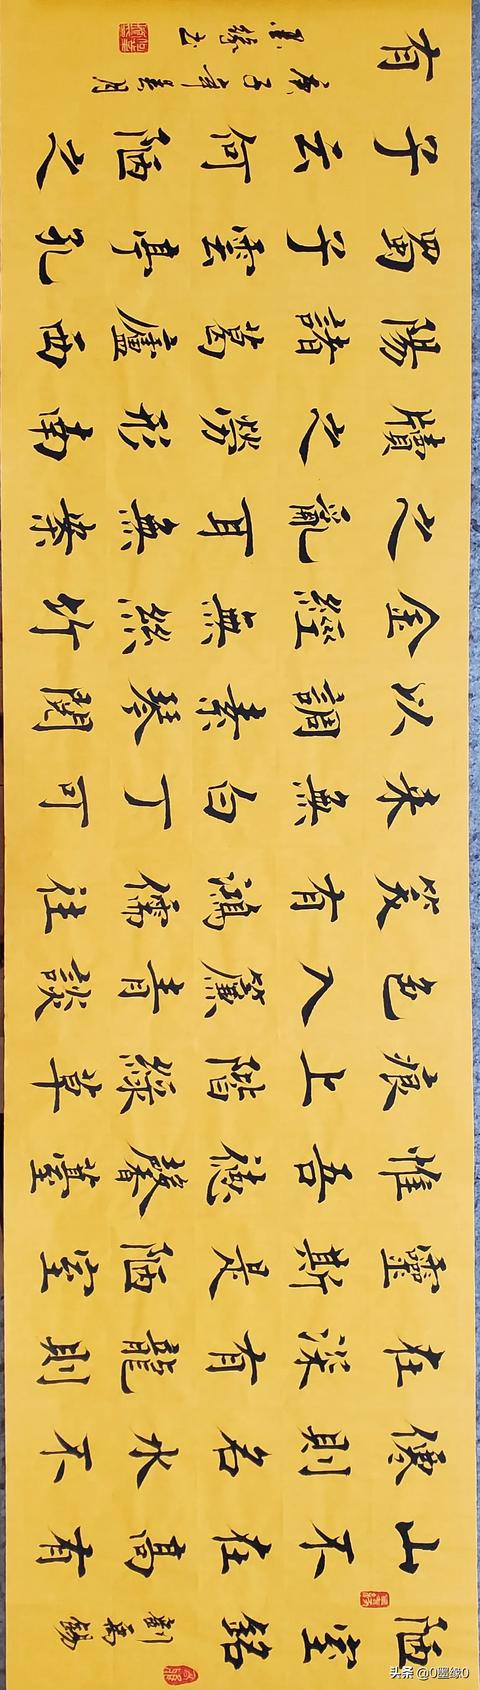 陋室銘 劉禹錫
山不在高有
僊則名水不
在深有龍則
靈斯是陋室
惟吾德馨薹
痕上階綠草
色入簾青談
笑有鴻儒往
來無白丁可
以調素琴閱
金經無絲竹
之亂耳無案
牘之勞形南
陽諸葛廬西
蜀子雲亭孔
子云何陋之
有
庚子年月
墨緣书
头条 @0墨缘0